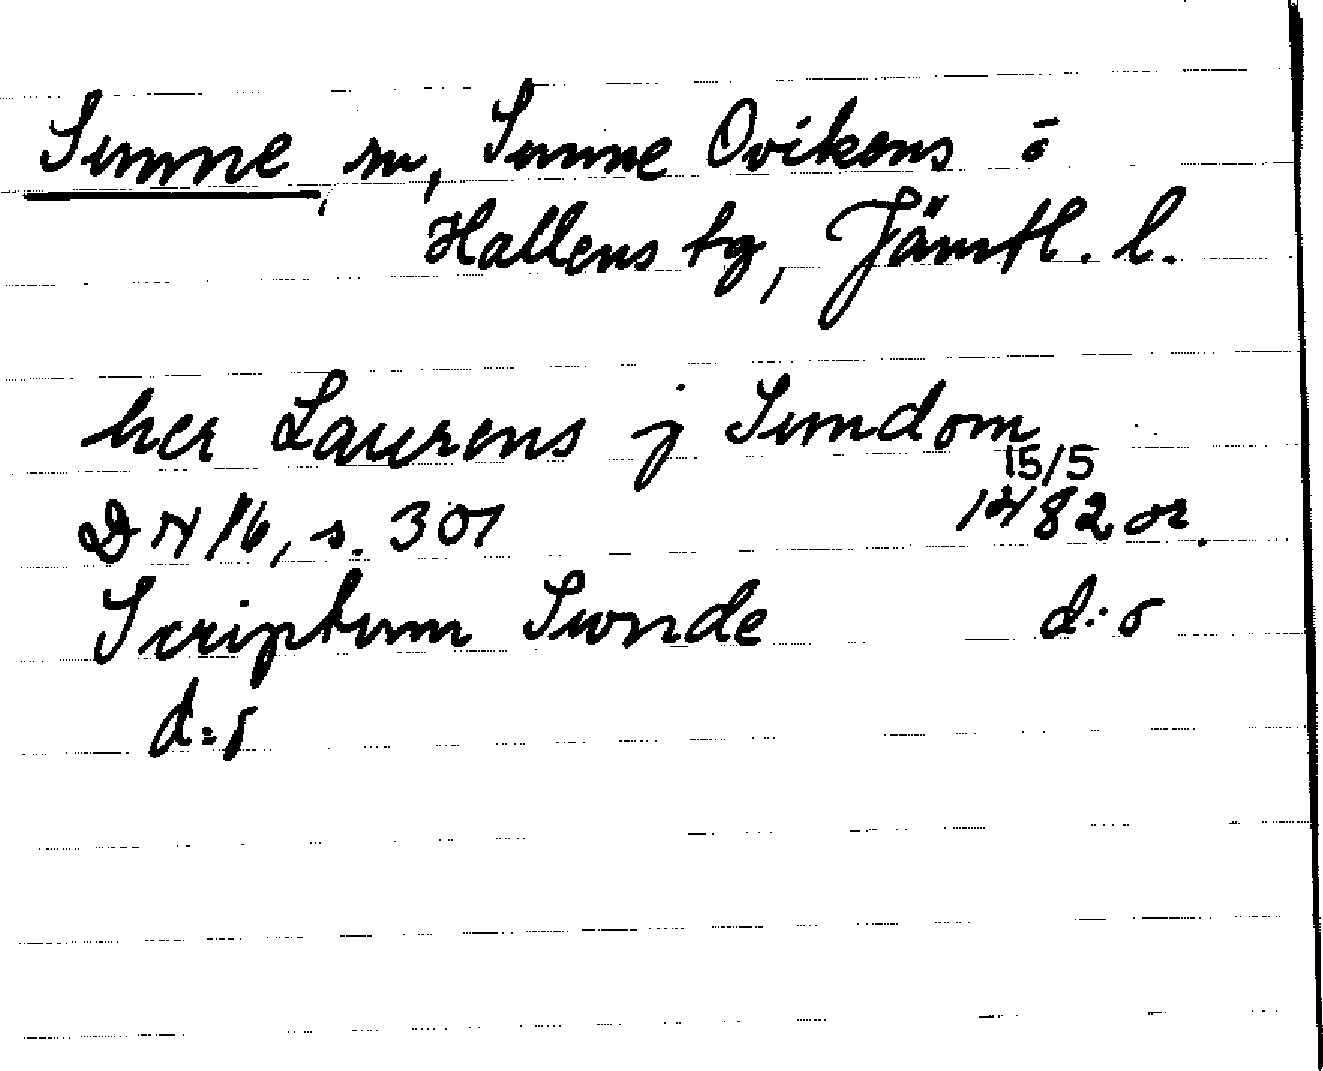 Sunne, sn, Sunne Ovikens o
Hallens tg, Jämtl. l.
her Laurens j Sundom
15/5
DN 16, s. 307 1482 or.
Scriptum Swnde d:o
d:o